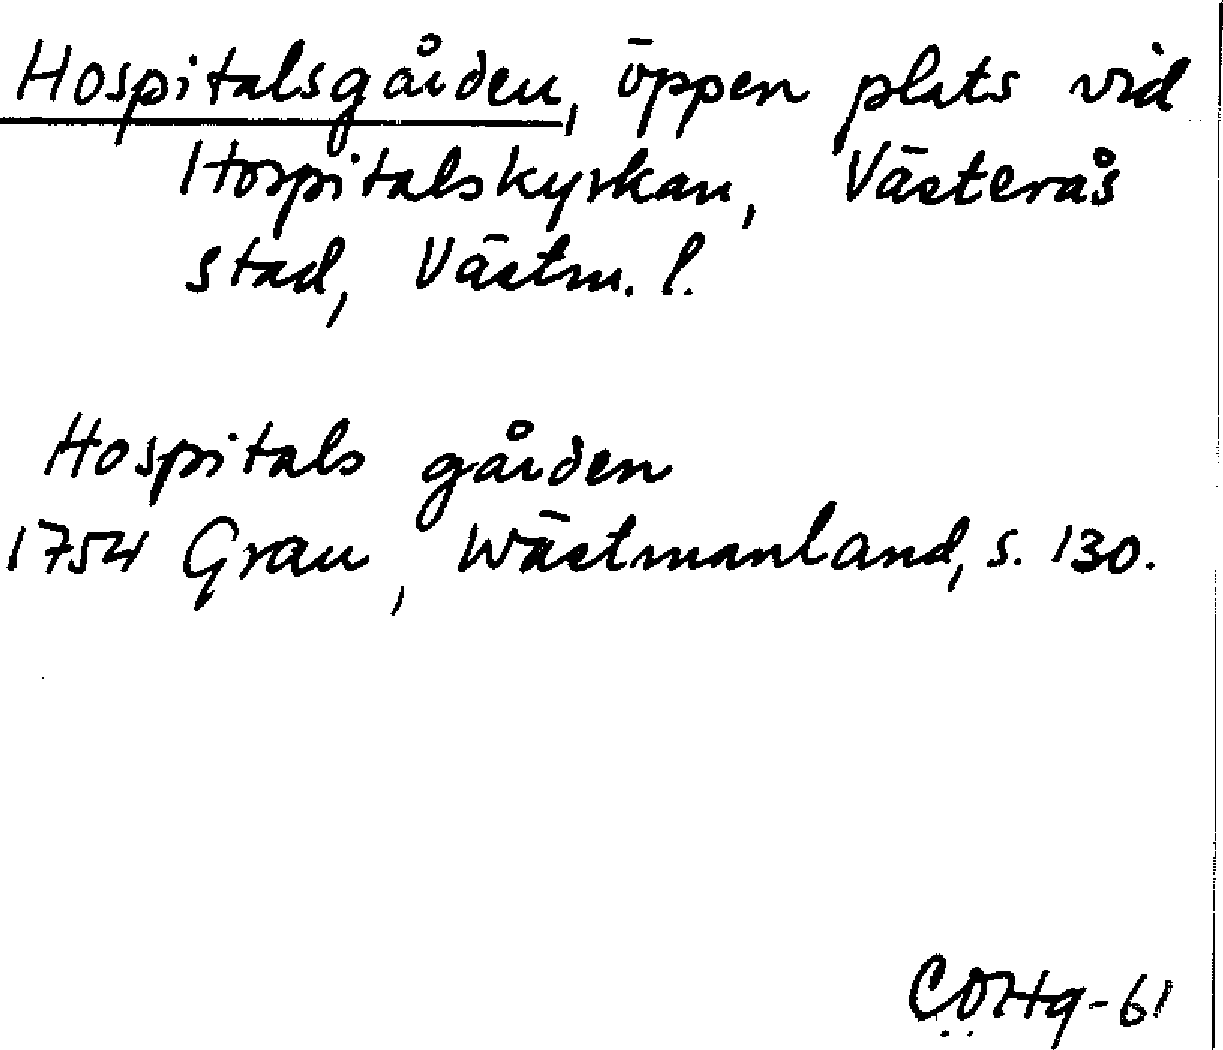 Hospitalsgården, öppen plats vid
Hospitalskyrkan, Västerås
stad, Västm. l.
Hospitals gården
1754 Grau, Wästmanland, s. 130.